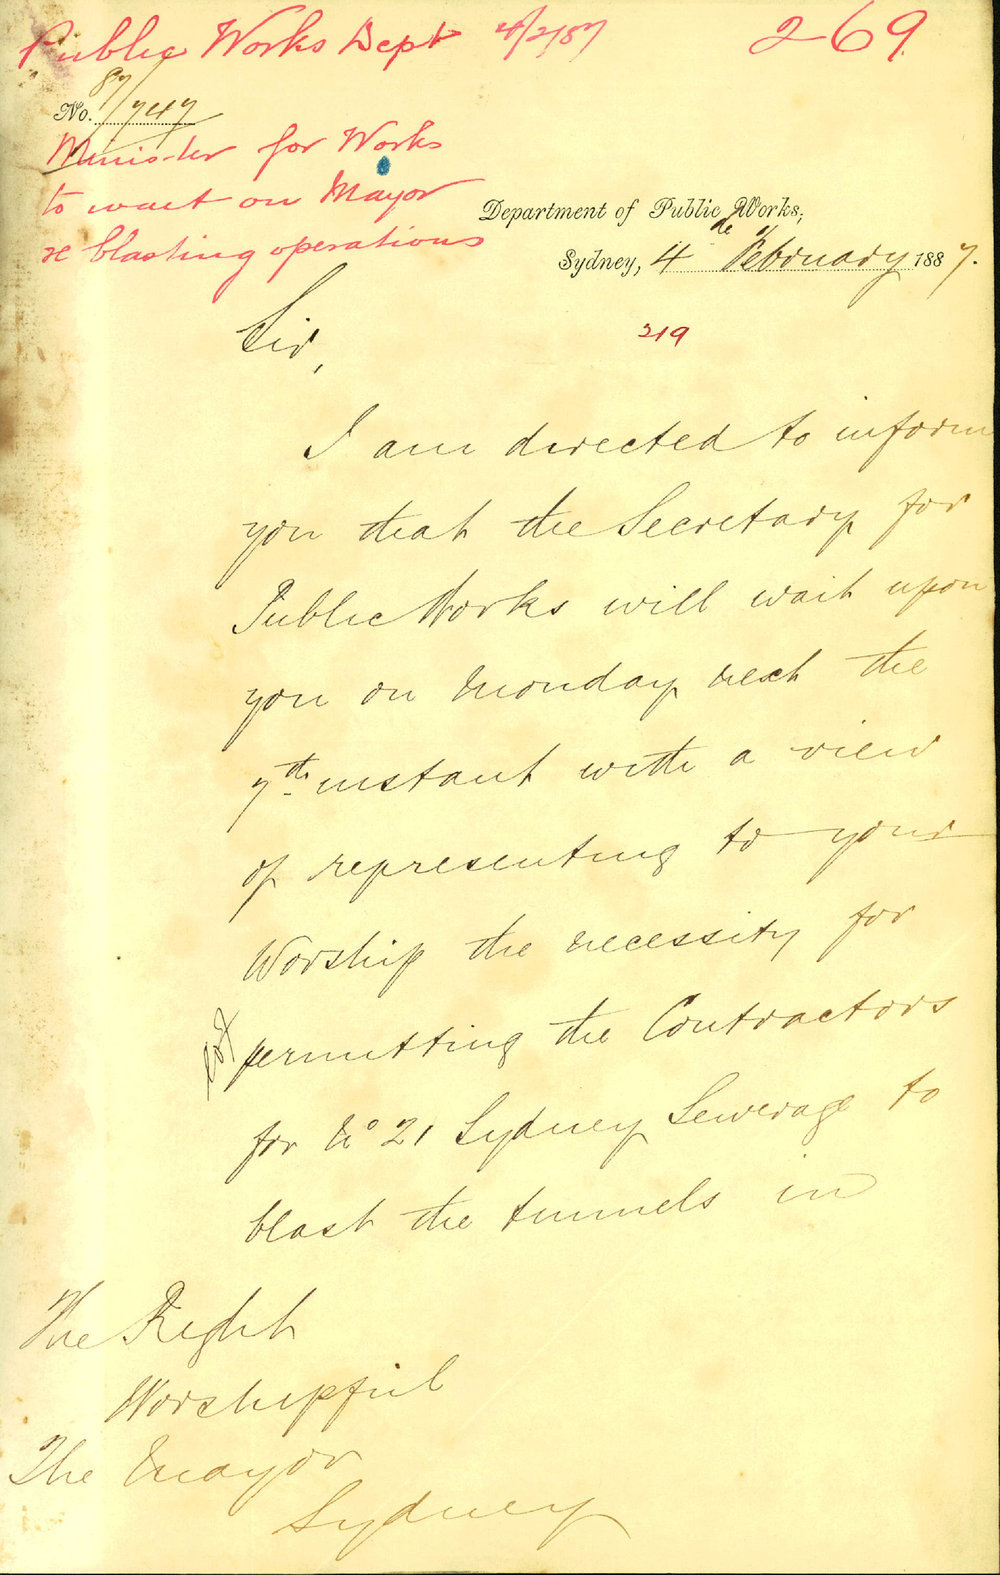 Public Works Dept 4/2/87
269
No. 87/747
Minister for Works
to wait on Mayor
re blasting operations
Department of Public Works,
Sydney, 4 February 1887.
219
Sir,
I am directed to inform
you that the Secretary for
Public Works will wait upon
you on Monday next the
7th instant with a view
of representing to your
Worship the necessity for
permitting the Contractors
for No 21 Sydney Sewerage to
blast the tunnels in
The Right
Worshipful
The Mayor
Sydney